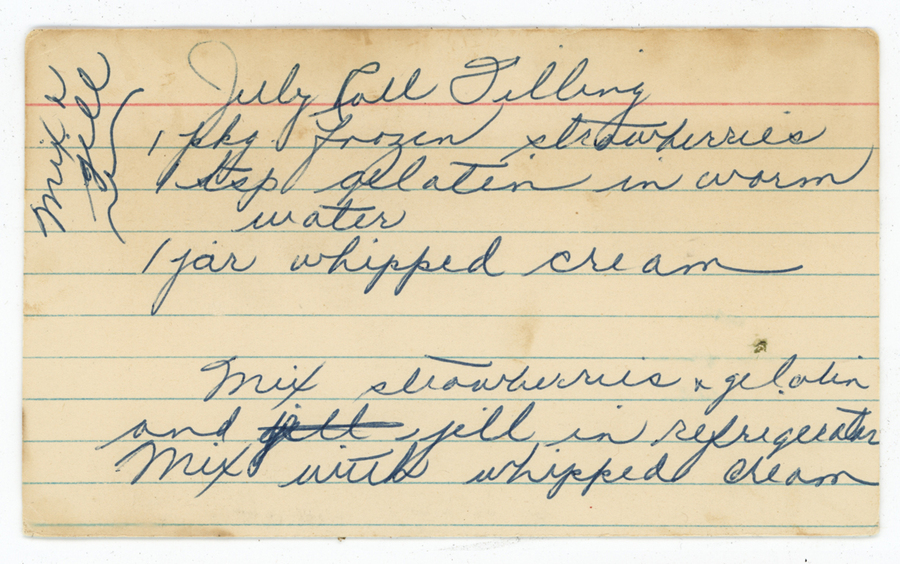 Mix &
gell
Jelly Roll Filling
1 pkg frozen strawberries
1 tsp gelatin in warm
water
1 jar whipped cream
Mix strawberries & gelatin
and jell in refrigerator
Mix with whipped cream